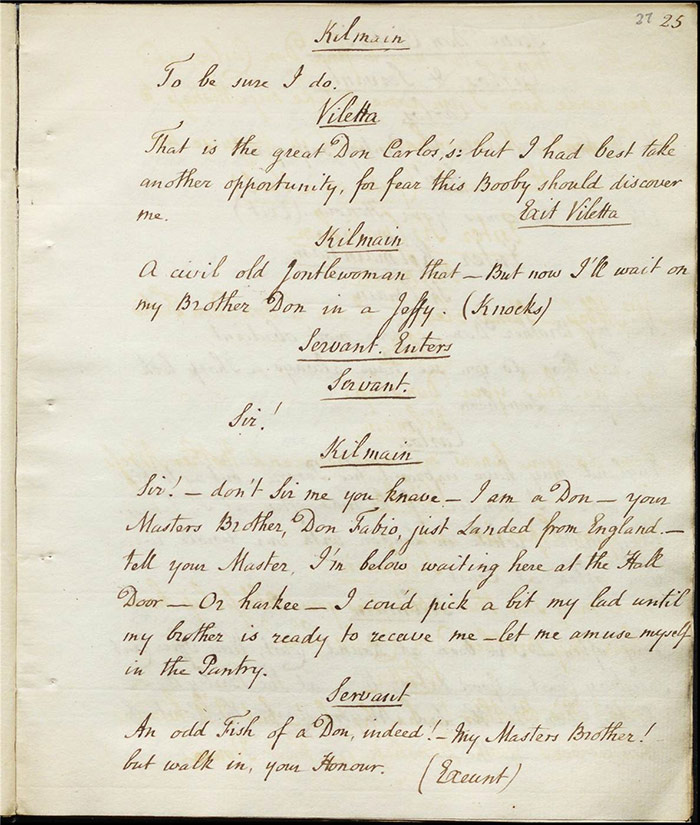 27 25
Kilmain
To be sure I do.
Viletta
That is the great Don Carlos's: but I had best take
another opportunity, for fear this Booby should discover
me. Exit Viletta
Kilmain
A civil old Jontlewoman that – But now I'll wait on
my Brother Don in a Jeffy. (Knocks)
Servant. Enters
Servant.
Sir!
Kilmain
Sir! – don't Sir me you knave – I am a Don – your
Masters Brother, Don Fabio, just Landed from England. –
tell your Master, I'm below waiting here at the Hall
Door – Or harkee – I cou'd pick a bit my lad until
my brother is ready to receive me – let me amuse myself
in the Pantry.
Servant
An odd Fish of a Don, indeed! – My Masters Brother!
but walk in, your Honour. (Exeunt)